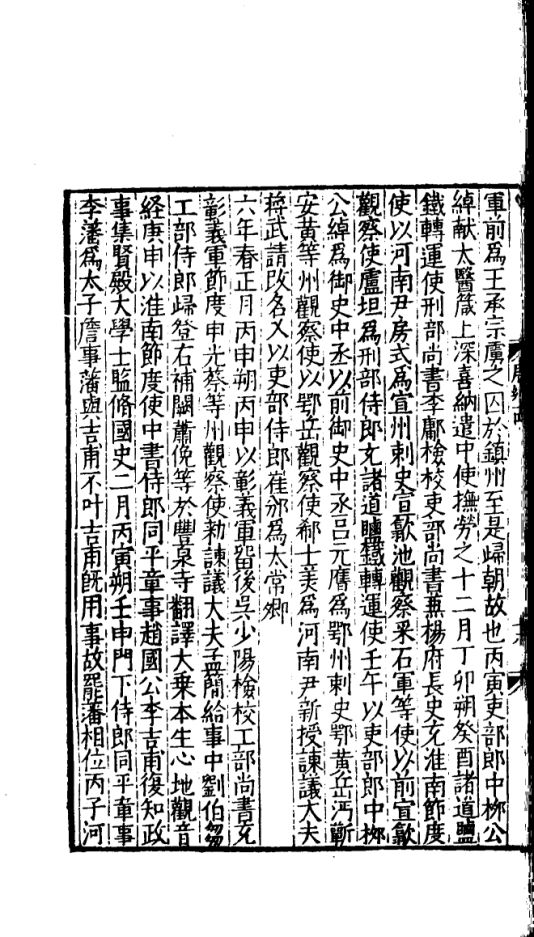 軍前爲王承宗虜之囚於鎮州至是歸朝故也丙寅吏部郎中柳公
綽献太醫箴上深喜納遣中使撫勞之十二月丁卯朔癸酉諸道鹽
鐵轉運使刑部尚書李鄘檢校吏部尚書兼楊府長史充淮南節度
使以河南尹房式爲宣州刺史宣歙池觀察采石軍等使以前宣歙
觀察使盧坦爲刑部侍郎充諸道鹽鐵轉運使壬午以吏部郎中柳
公綽爲御史中丞以前御史中丞吕元膺爲鄂州刺史鄂黄岳沔蘄
安黄等州觀察使以鄂岳觀察使郗士美爲河南尹新授諫議大夫
蔣武請改名乂以吏部侍郎崔邠爲太常卿
六年春正月丙申朔丙申以彰義軍留後吳少陽檢校工部尚書充
彰義軍節度申光蔡等州觀察使勑諫議大夫孟簡給事中劉伯芻
工部侍郎歸登右補闕蕭俛等於豐泉寺翻譯大乗本生心地觀音
経庚申以淮南節度使中書侍郎同平章事趙國公李吉甫復知政
事集賢殿大學士監脩國史二月丙寅朔壬申門下侍郎同平章事
李藩爲太子詹事藩與吉甫不叶吉甫既用事故罷藩相位丙子河